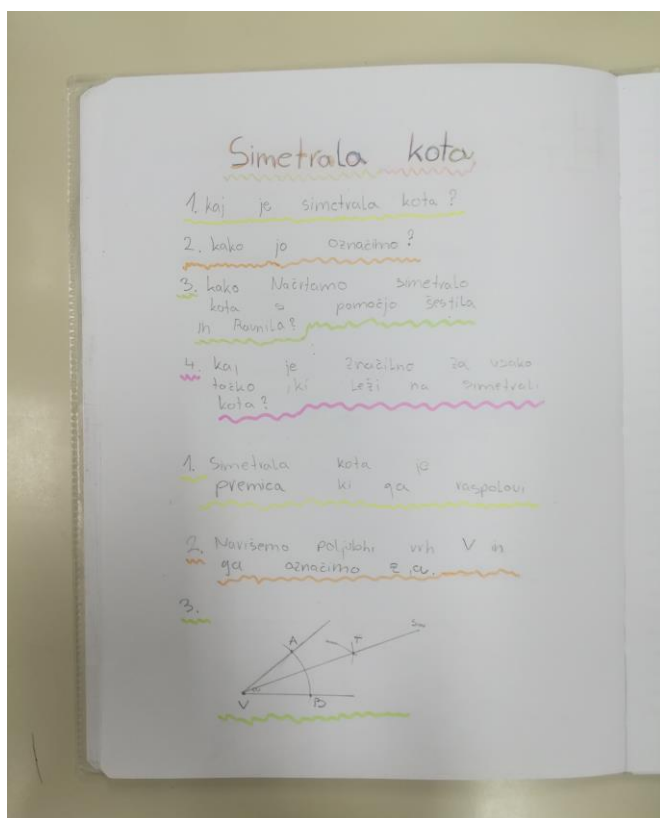 Simetrala kota
1. kaj je simetrala kota?
2. kako jo označimo?
3. kako Načrtamo simetralo
kota s pomočjo šestila
in Ravnila?
4. kaj je značilno za vsako
točko ,ki Leži na simetrali
kota?
1. Simetrala kota je
premica ki ga raspolovi
2. Narišemo vrh V in
ga označimo
3.
A T
V B